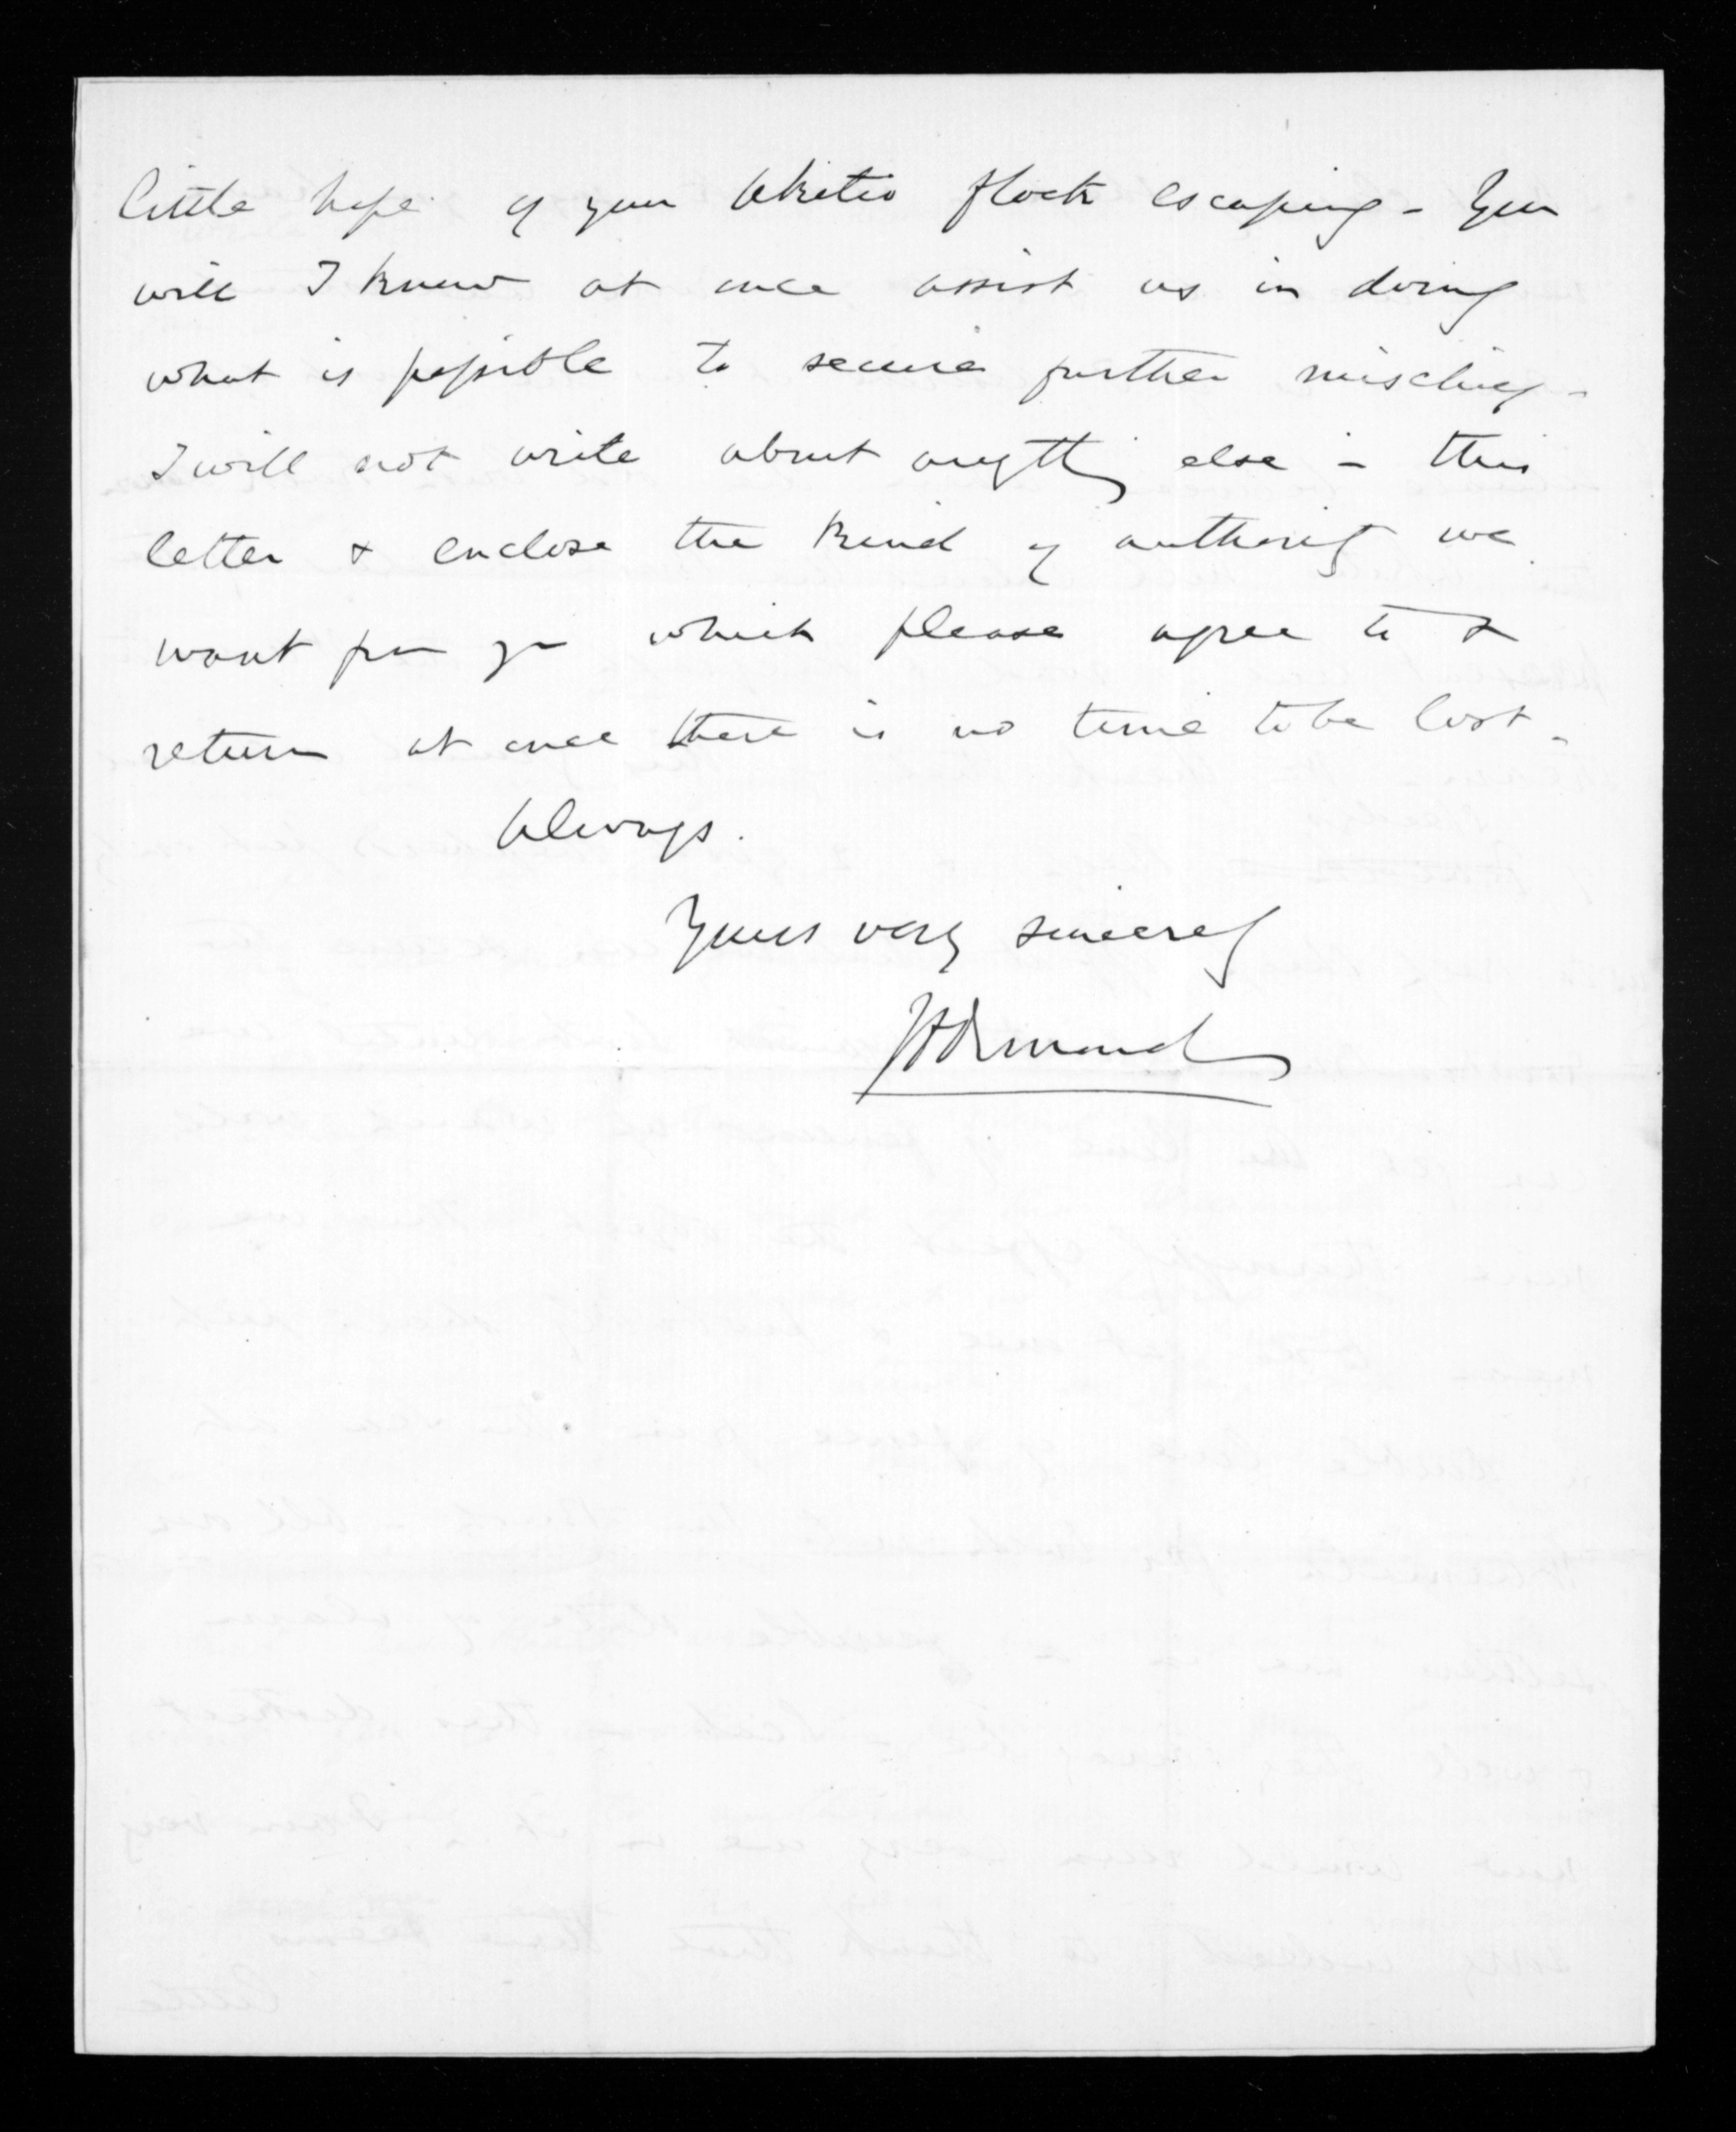 little hope of your Akitio flock escaping - You
will I know at once assist us in doing
what is possible to secure further mischief -
I will not write about anything else in this
letter & enclose the kind of authority we
want from you which please agree to &
return at once there is no time to be lost -
Always.
Yours very sincerely
JDOrmond